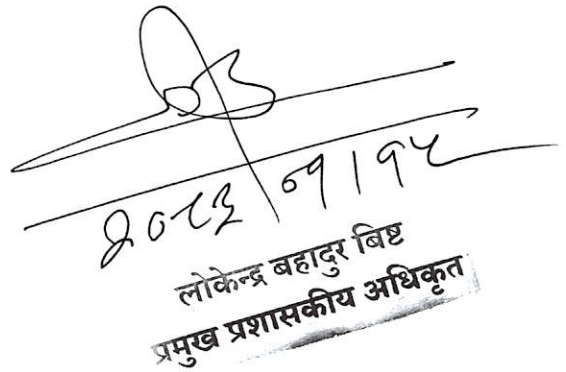 २०८३/०१/१५
लोकेन्द्र बहादुर बिष्ट
प्रमुख प्रशासकीय अधिकृत